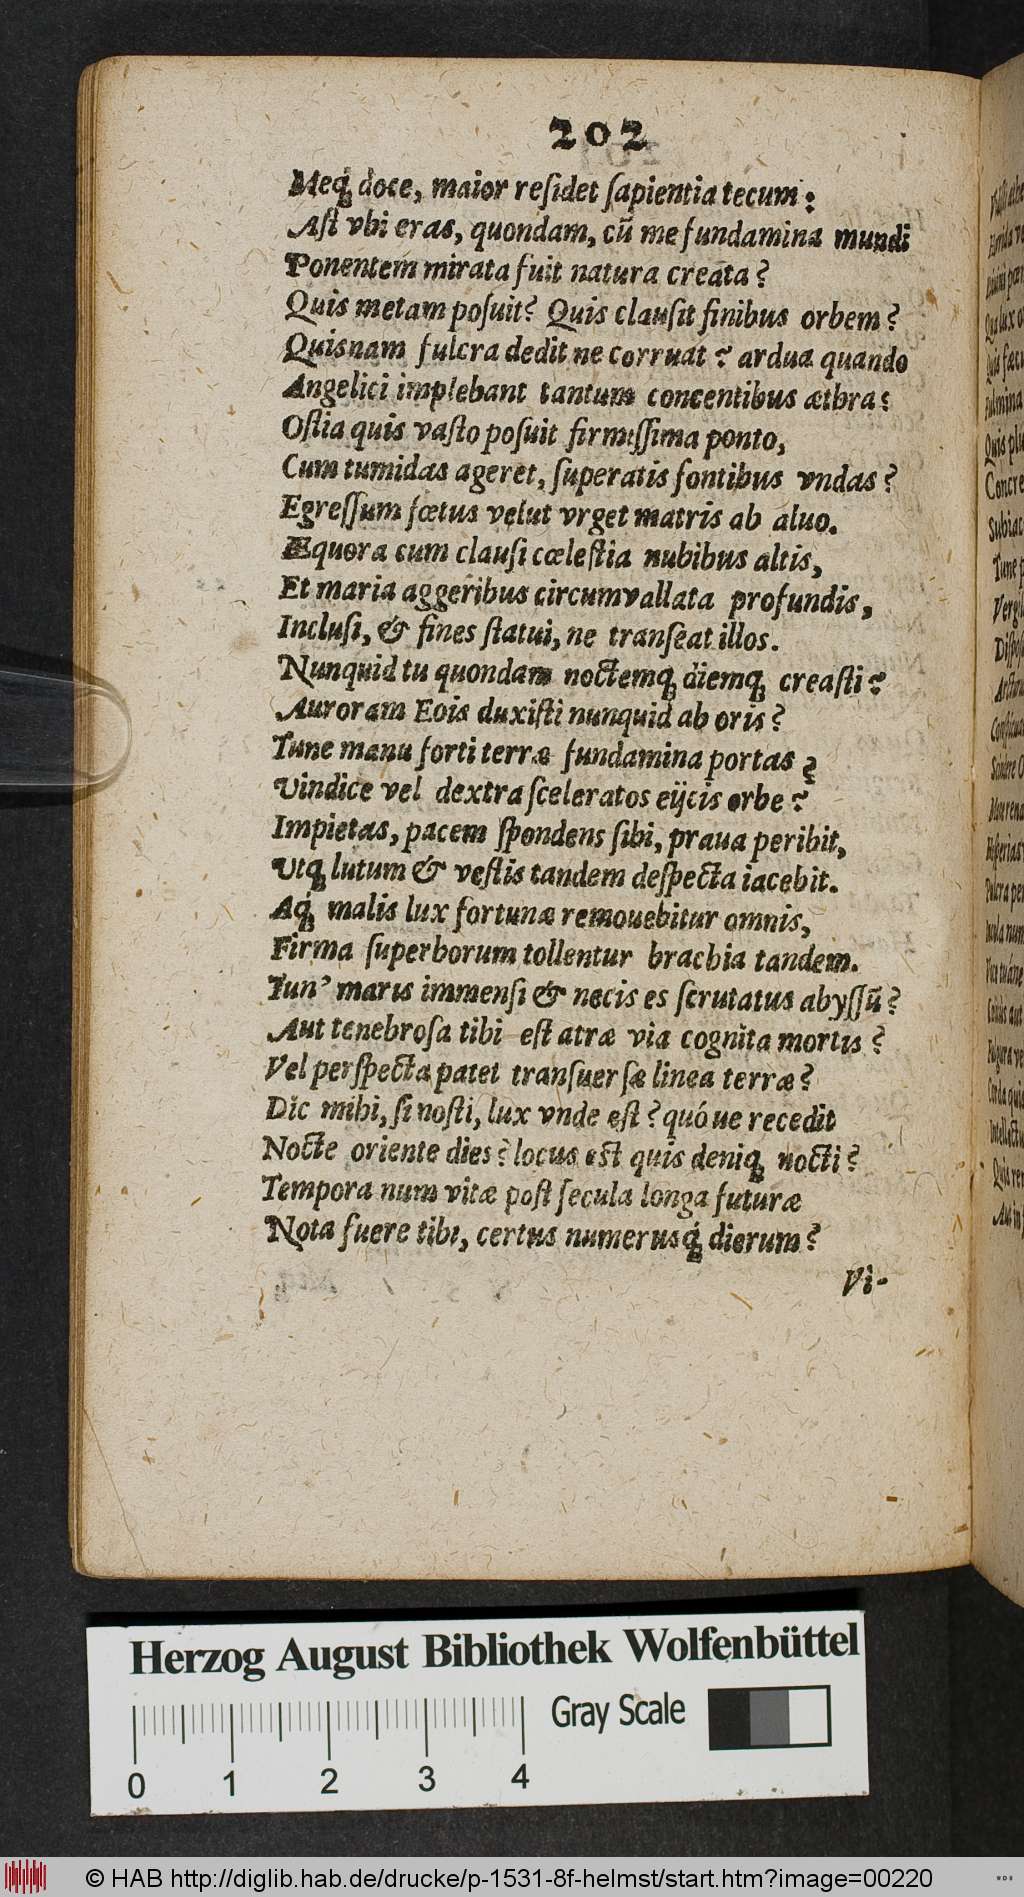 202
Meq́; doce, maior reſidet ſapientia tecum:
Aſt vbi eras, quondam, cũ me fundamina mundi
Ponentem mirata fuit natura creata?
Quis metam poſuit? Quis clauſit finibus orbem?
Quisnam fulcra dedit ne corruat? ardua quando
Angelici implebant tantum concentibus æthra?
Oſtia quis vaſto poſuit firmiſſima ponto,
Cum tumidas ageret, ſuperatis fontibus vndas?
Egreſſum fœtus velut vrget matris ab aluo.
Æquora cum clauſi cœleſtia nubibus altis,
Et maria aggeribus circumvallata profundis,
Incluſi, & fines ſtatui, ne tranſeat illos.
Nunquid tu quondam noctemq; diemq; creaſti?
Auroram Eois duxiſti nunquid ab oris?
Tune manu forti terræ fundamina portas?
Vindice vel dextra ſceleratos eijcis orbe?
Impietas, pacem ſpondens ſibi, praua peribit,
Vtq; lutum & veſtis tandem deſpecta iacebit.
Aq́; malis lux fortunæ remouebitur omnis,
Firma ſuperborum tollentur brachia tandem.
Tun' maris immenſi & necis es ſcrutatus abyſſũ?
Aut tenebroſa tibi eſt atræ via cognita mortis?
Vel perſpecta patet tranſuerſæ linea terræ?
Dic mihi, ſi noſti, lux vnde eſt? quó ue recedit
Nocte oriente dies? locus eſt quis deniq; nocti?
Tempora num vitæ poſt ſecula longa futuræ
Nota fuere tibi, certus numerusq́; dierum?
Vi-
Herzog August Bibliothek Wolfenbüttel
Gray Scale
0 1 2 3 4
© HAB http://diglib.hab.de/drucke/p-1531-8f-helmst/start.htm?image=00220